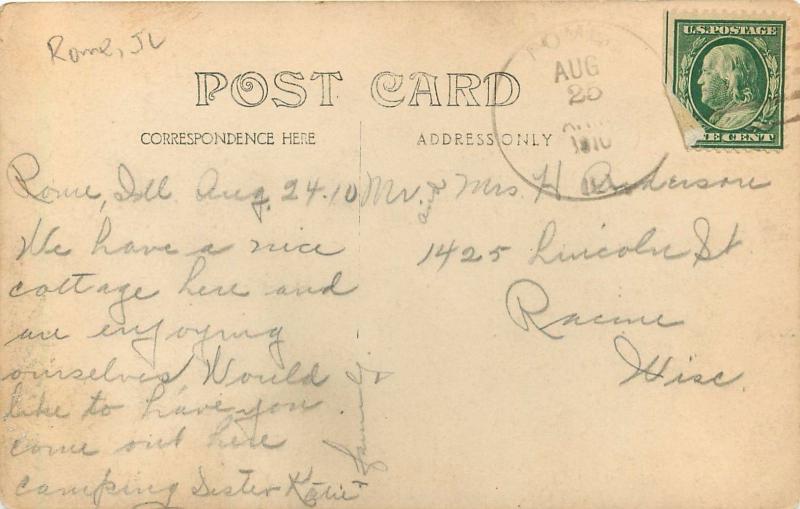 Rome, IL
POST CARD
CORRESPONDENCE HERE
ADDRESS ONLY
ROME
AUG
25
1910
ILL
U.S. POSTAGE
ONE CENT
Rome, Ill Aug. 24-10
We have a nice
cottage here and
are enjoying
ourselves, Would
like to have you
come out here
camping Sister Katie +
Mr. and Mrs. H. Anderson
1425 Lincoln St
Racine
Wisc.